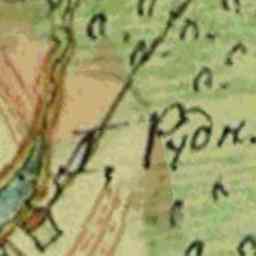 Рудн.